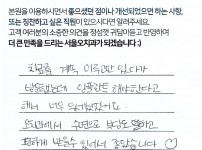 본원을 이용하시면서 좋으셨던 점이나 개선되었으면 하는 사항,
또는 칭찬하고 싶은 직원이 있으시다면 알려주세요.
고객 여러분의 소중한 의견을 정성껏 귀담아듣고 반영하여
더 큰 만족을 드리는 서울오치과가 되겠습니다 :)
치료를 계속 미루고만 있다가
방문했는데 임플란트 해야한다고
해서 너무 무서웠었어요
오치과에서 수면으로 부담도 덜하고
편하게 받을수 있어서 좋았습니다